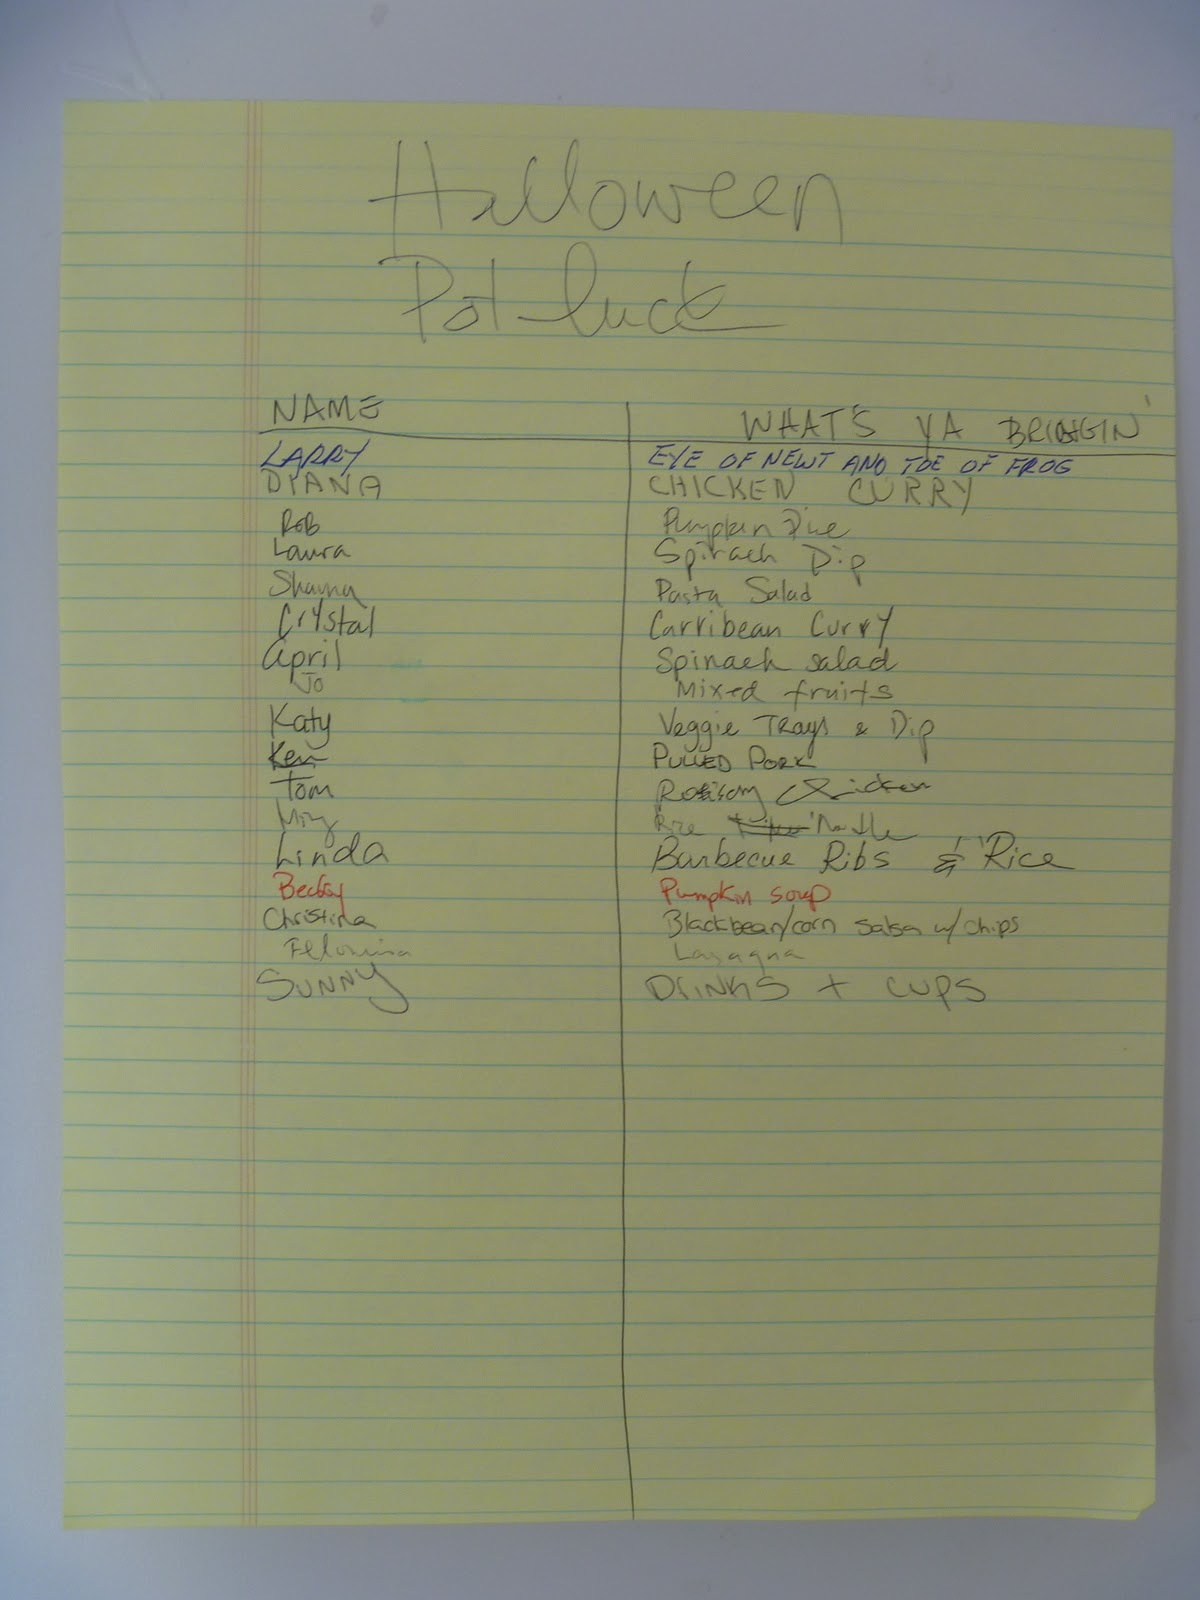 Halloween
Pot luck
NAME WHAT'S YA BRINGIN'
LARRY EYE OF NEWT AND TOE OF FROG
DIANA CHICKEN CURRY
Rob Pumpkin
Laura Spinach Dip
Shauna Pasta Salad
Crystal Carribean Curry
April Spinach salad
Jo Mixed fruits
Katy Veggie Trays & Dip
Ken PULLED PORK
Tom Chicken
Rice Noodle
Linda Barbecue Ribs & "Rice
Becky Pumpkin soup
Christina Blackbean/corn salsa w/ chips
Lasagna
SUNNY Drinks + cups